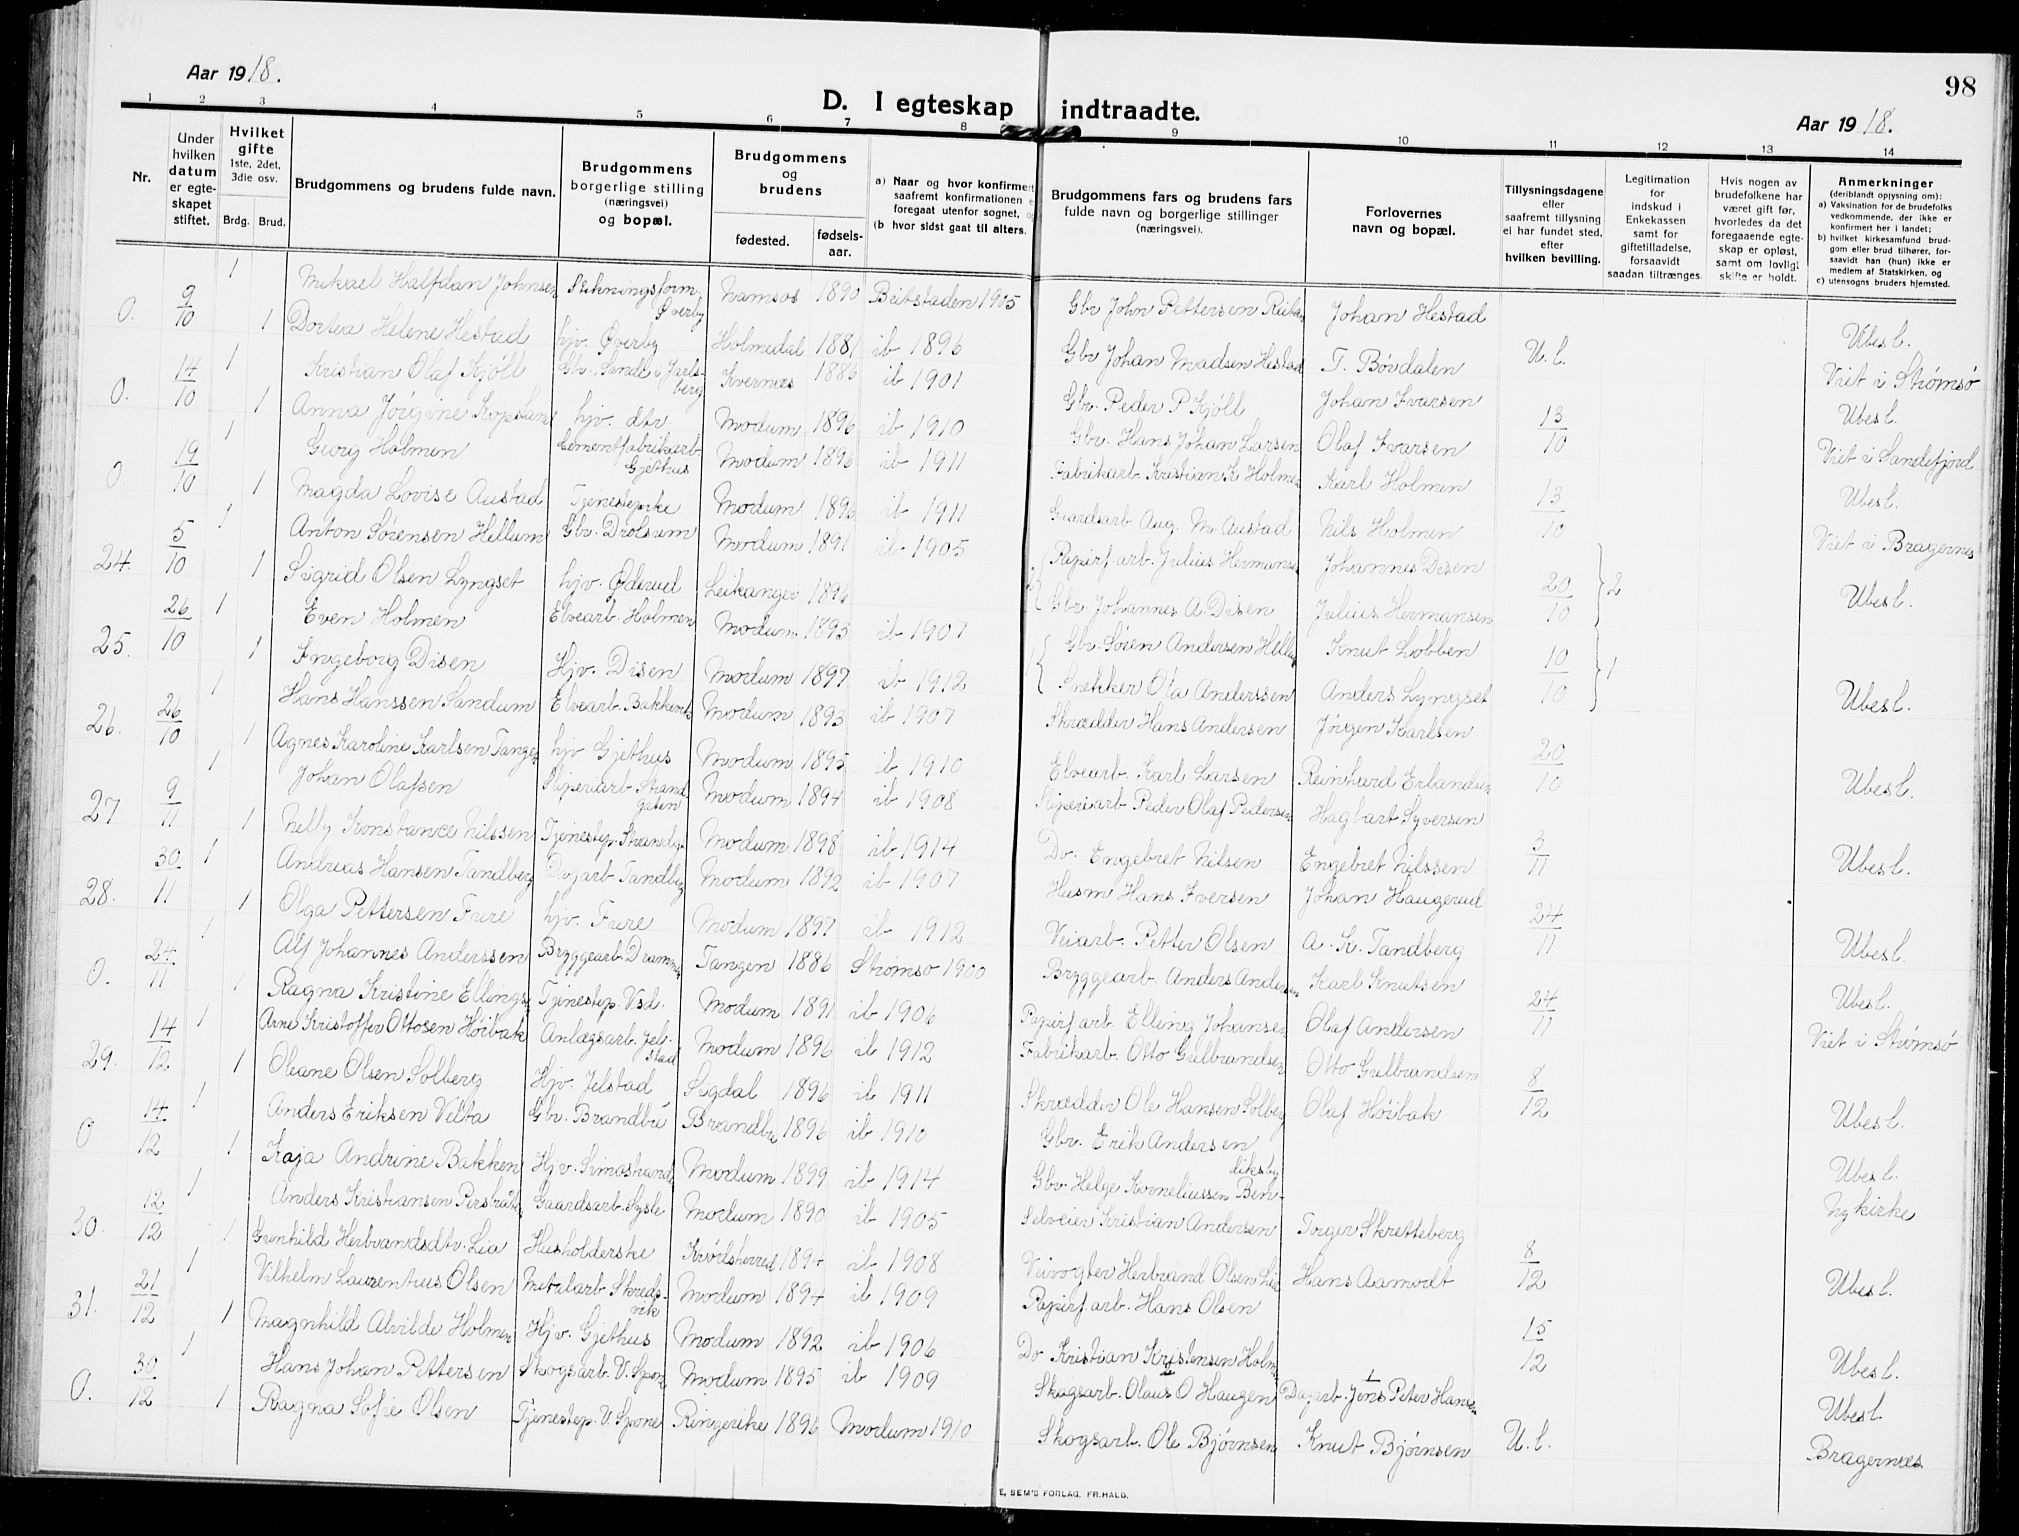 Aar 1918.
98
D. I egteskap indtraadte.
Aar 1918.
1 2 3 4 5 6 7 8 9 10 11 12 13 14
Nr.
Under hvilken datum er egteskapet stiftet.
Hvilket gifte 1ste, 2det, 3die osv.
Brdg. Brud.
Brudgommens og brudens fulde navn.
Brudgommens borgerlige stilling (næringsvei) og bopæl.
Brudgommens og brudens
fødested. fødselsaar.
a) Naar og hvor konfirmert saafremt konfirmationen foregaat utenfor sognet,
(b hvor sidst gaat til alters.
Brudgommens fars og brudens fars fulde navn og borgerlige stillinger (næringsvei).
Forlovernes navn og bopæl.
Tillysningsdagene eller saafremt tillysning ei har fundet sted, efter hvilken bevilling.
Legitimation for indskud i Enkekassen samt for giftetilladelse, forsaavidt saadan tiltrænges.
Hvis nogen av brudefolkene har været gift før, hvorledes da det foregaaende egteskap er opløst, samt om lovligt skifte er holdt.
Anmerkninger (deriblandt opjysning om):
a) Vaksination for de brudefolks vedkommende, der ikke er konfirmert her i landet;
b) hvilket kirkesamfund brudgom eller brud tilhører, forsaavidt han (hun) ikke er medlem af Statskirken, og
c) utensogns bruders hjemsted.
O. 9/10 1 Mikael Halfdan Johnsen Øverby Namsos 1890 Beitstaden 1905 Gbr John Pettersen Johan Hestad
1 Dortea Helene Hestad hjv. Øverby Holmedal 1881 ib 1896 Gbr Johan Madsen Hestad T. Bøvdalen U.l. Ubesl. Viet i Strømsø
O. 14/10 1 Kristian Olaf Kjöll Gbr. Sande i Jarlsberg Kvernes 1886 ib 1901 Gbr. Peder P Kjöll Johan Ivarsen
1 Anna Jörgine hjv. dtv Modum 1896 ib 1910 Gbr. Hans Johan Larsen Olaf Ivarsen 13/10 Ubesl. Viet i Sandefjord
O 19/10 1 Georg Holmen Cementfabrikarb. Gjethus Modum 1896 ib 1911 Fabrikarb. Kristian K Holmen Karl Holmen
1 Magda Lovise Austad Tjenestepike Modum 1896 ib 1911 Gaardsarb. Aug. M. Austad Nils Holmen 13/10 Ubesl. Viet i Bragernes
24. 5/10 1 Anton Sørensen Hellum Gbr. Drolsum Modum 1891 ib 1905 Papirfarb. Julius Hermansen Johannes Disen
1 Sigrid Olsen Lyngset hjv. Øderud Leikanger 1896 Gbr Johannes A. Disen Julius Hermansen 20/10 2 Ubesl.
25. 26/10 1 Even Holmen Elvearb. Holmen Modum 1893 ib 1907 Gbr. Søren Andersen Hellum Knut Lobben
1 Ingeborg Disen Hjv. Disen Modum 1897 ib 1912 Snekker Ola Anderssen Anders Lyngset 10/10 1 Ubesl.
26. 26/10 1 Hans Hanssen Sandum Elvearb. Modum 1893 ib 1907 Skrædder Hans Andersen Jørgen Karlsen
1 Agnes Karoline Karlsen Tangen hjv Gjethus Modum 1895 ib 1910 Elvearb. Karl Larsen Reinhard Erlandsen 20/10 Ubesl.
27 9/11 1 Johan Olafsen Sliperiarb Strandgaten Modum 1894 ib 1908 Sliperiarb Peder Olaf Pedersen Hagbart Syversen
1 Nelly Konstance Nilssen Tjenestep. Modum 1898 ib 1914 Do. Engebret Nilsen Engebret Nilssen 3/11 Ubesl.
28. 30/11 1 Andreas Hansen Tandberg Dagarb Tandberg Modum 1892 ib 1907 Husm Hans Iversen Johan Haugerud
1 Olga Pettersen Fure hjv. Fure Modum 1897 ib 1912 Veiarb. Petter Olsen A. K. Tandberg 24/11 Ubesl.
O. 24/11 1 Alf Johannes Anderssen Bryggearb. Drammen Tangen 1886 Strømsø 1900 Bryggearb. Anders Andersen Karl Knutsen
1 Ragna Kristine Ellingsen Tjenestep. Modum 1891 ib 1906 Papirfarb. Elling Johansen Olaf Andersen 24/11 Ubesl. Viet i Strømsø
29. 14/12 1 Arne Kristoffer Ottosen Höibak Anlægsarb. Jelstad Modum 1896 ib 1912 Fabrikarb. Otto Gulbrandsen Otto Gulbrandsen
1 Oleane Olsen Solberg Hjv. Jelstad Sigdal 1896 ib 1911 Skrædder Ole Hansen Solberg Olaf Höibak 8/12 Ubesl.
O 14/12 1 Anders Eriksen Velta Gbr. Brandbu Brandbu 1896 ib 1910 Gbr. Erik Andersen
1 Kaja Andrine Bakken Hjv. Simostrand Modum 1899 ib 1914 Gbr. Helge Korneliussen Bendiksby Ubesl. Nykirke
30. 12/12 1 Anders Kristiansen Gaardsarb. Sysle Modum 1890 ib 1905 Selveier Kristian Andersen Torger Skretteberg
1 Gunhild Herbrandsdtr. Lia Husholderske Krødsherred 1894 ib 1908 Veivogter Herbrand Olsen Lia Hans Aamodt 8/12 Ubesl.
31. 21/12 1 Vilhelm Laurentius Olsen Metalarb Skredsvik Modum 1894 ib 1909 Papirfarb. Hans Olsen
1 Magnhild Alvilde Holmen Hjv. Gjethus Modum 1892 ib 1906 Do Kristian Kristensen Holmen 15/12 Ubesl.
O. 30/12 1 Hans Johan Pettersen Skogsarb. V. Spone Modum 1895 ib 1909 Skogsarb. Olaus O Haugen Dagarb. Jens Peter Hansen
1 Ragna Sofie Olsen Tjenestep. V. Spone Ringerike 1896 Modum 1910 Skogsarb. Ole Bjørnsen Knut Bjørnsen U.l. Ubesl. Bragernæs
E. SEM'S FORLAG, FR.HALD.